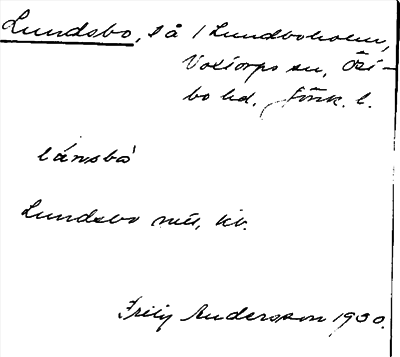 Lundsbo, då / Lundboholm,
Voxtorps sn, Öst-
bo hd. Jönk. l.
lánsbò
Lundsbo nu, kv.
Fritz Andersson 1930.